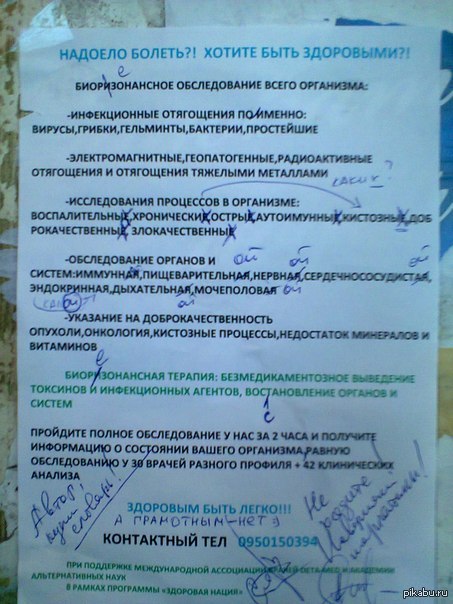 НАДОЕЛО БОЛЕТЬ?! ХОТИТЕ БЫТЬ ЗДОРОВЫМИ?!
е
БИОРИЗОНАНСНОЕ ОБСЛЕДОВАНИЕ ВСЕГО ОРГАНИЗМА:
-ИНФЕКЦИОННЫЕ ОТЯГОЩЕНИЯ ПОИМЕННО:
ВИРУСЫ,ГРИБКИ,ГЕЛЬМИНТЫ,БАКТЕРИИ,ПРОСТЕЙШИЕ
-ЭЛЕКТРОМАГНИТНЫЕ,ГЕОПАТОГЕННЫЕ,РАДИОАКТИВНЫЕ
ОТЯГОЩЕНИЯ И ОТЯГОЩЕНИЯ ТЯЖЕЛЫМИ МЕТАЛЛАМИ
каких?
-ИССЛЕДОВАНИЯ ПРОЦЕССОВ В ОРГАНИЗМЕ:
ВОСПАЛИТЕЛЬНЫЕ,ХРОНИЧЕСКИХ,ОСТРЫХ,АУТОИМУННЫХ,КИСТОЗНЫЕ,ДОБ
РОКАЧЕСТВЕННЫЕ ЗЛОКАЧЕСТВЕННЫЕ
-ОБСЛЕДОВАНИЕ ОРГАНОВ И
ой ой ой
СИСТЕМ:ИММУННАЯ,ПИЩЕВАРИТЕЛЬНАЯ,НЕРВНАЯ,СЕРДЕЧНОСОСУДИСТАЯ,
ЭНДОКРИННАЯ,ДЫХАТЕЛЬНАЯ,МОЧЕПОЛОВАЯ ой
ой ой
-УКАЗАНИЕ НА ДОБРОКАЧЕСТВЕННОСТЬ
ОПУХОЛИ,ОНКОЛОГИЯ,КИСТОЗНЫЕ ПРОЦЕССЫ,НЕДОСТАТОК МИНЕРАЛОВ И
ВИТАМИНОВ
е
БИОРИЗОНАНСНАЯ ТЕРАПИЯ: БЕЗМЕДИКАМЕНТОЗНОЕ ВЫВЕДЕНИЕ
ТОКСИНОВ И ИНФЕКЦИОННЫХ АГЕНТОВ, ВОСТАНОВЛЕНИЕ ОРГАНОВ И
СИСТЕМ
с
ПРОЙДИТЕ ПОЛНОЕ ОБСЛЕДОВАНИЕ У НАС ЗА 2 ЧАСА И ПОЛУЧИТЕ
ИНФОРМАЦИЮ О СОСТОЯНИИ ВАШЕГО ОРГАНИЗМА,РАВНУЮ
ОБСЛЕДОВАНИЮ У 30 ВРАЧЕЙ РАЗНОГО ПРОФИЛЯ + 42 КЛИНИЧЕСКИХ
АНАЛИЗА
Автор!
купи
словарь!
ЗДОРОВЫМ БЫТЬ ЛЕГКО!!!
А ГРАМОТНЫМ-НЕТ :)
Не
КОНТАКТНЫЙ ТЕЛ 0950150394
ПРИ ПОДДЕРЖКЕ МЕЖДУНАРОДНОЙ АССОЦИАЦИИ ВРАЧЕЙ ВЕГА-МЕД И АКАДЕМИИ
АЛЬТЕРНАТИВНЫХ НАУК
В РАМКАХ ПРОГРАММЫ «ЗДОРОВАЯ НАЦИЯ»
pikabu.ru